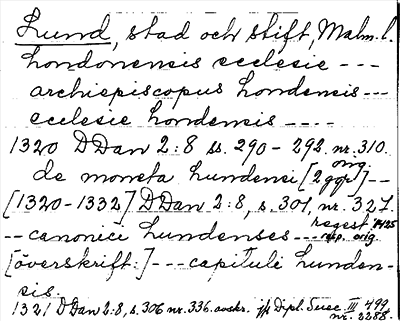 Lund, stad och stift, Malm. l.
Londonensis ecclesie ---
archiepiscopus londensis ---
ecclesie londensis ----
1320 DDan 2:8 ss. 290-292 nr. 310.
orig.
de moneta Lundensi [2 ggr] --
[1320-1332] DDan 2:8, s. 301, nr. 327
regest 1425
-- canonici Lundenses --- rep. orig.
[överskrift:] --- capituli Lunden-
sis.
1321 DDan 2:8, s. 306 nr. 336. avskr. jfr Dipl. Suec. III 499,
nr. 2288.